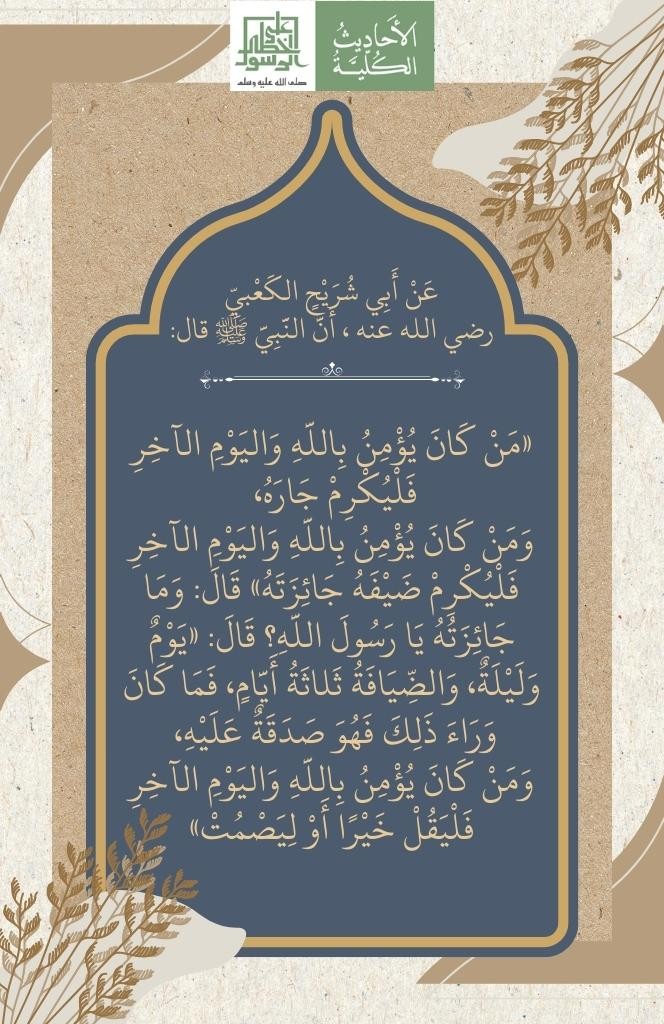 الأَحَادِيثُ
الكُلِّيَّةُ
على
خطى
الرسول
صلى الله عليه وسلم
عَنْ أَبِي شُرَيْحٍ الكَعْبيّ
رضي الله عنه ، أنَّ النّبِيّ ﷺ قال:
«مَنْ كَانَ يُؤْمِنُ بِاللّهِ وَاليَوْمِ الآخِرِ
فَلْيُكْرِمْ جَارَهُ،
وَمَنْ كَانَ يُؤْمِنُ بِاللّهِ وَاليَوْمِ الآخِرِ
فَلْيُكْرِمْ ضَيْفَهُ جَائِزَتَهُ» قَالَ: وَمَا
جَائِزَتُهُ يَا رَسُولَ اللّهِ؟ قَالَ: «يَوْمٌ
وَلَيْلَةٌ، وَالضِّيَافَةُ ثَلاثَةُ أَيّامٍ، فَمَا كَانَ
وَرَاءَ ذَلِكَ فَهُوَ صَدَقَةٌ عَلَيْهِ،
وَمَنْ كَانَ يُؤْمِنُ بِاللّهِ وَاليَوْمِ الآخِرِ
فَلْيَقُلْ خَيْرًا أَوْ لِيَصْمُتْ»